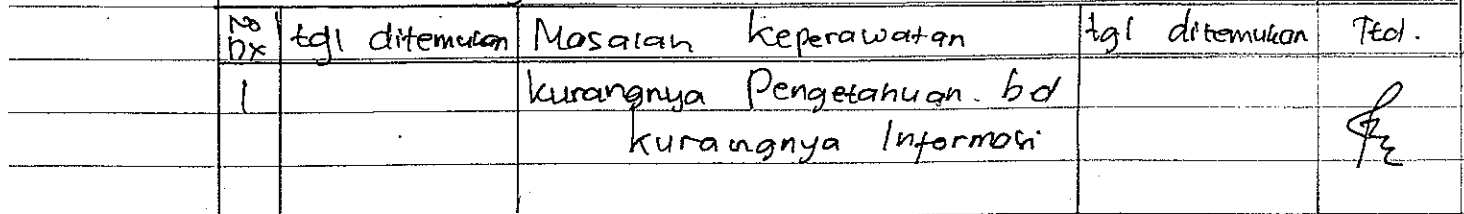 No Dx tgl ditemukan Masalah Keperawatan tgl ditemukan Ttd.
1 kurangnya Pengetahuan. bd
kurangnya Informasi